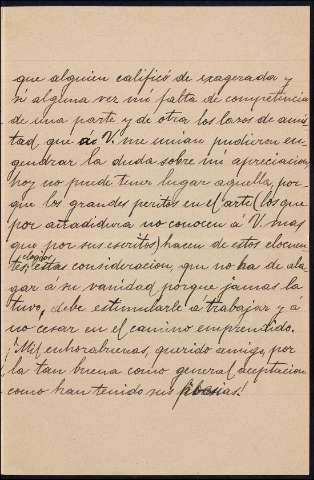 que alguien calificó de exagerada y
si alguna vez mi falta de competencia
de una parte y de otra los lazos de amis
tad, que á V. me unian pudieron en-
gendrar la duda sobre mi apreciacion,
hoy no puede tener lugar aquella, por-
que los grandes peritos en el arte (los que
por añadidura no conocen á V. mas
que por sus escritos) hacen de estos elocuen
tes elogios; esta consideracion, que no ha de ala
gar a su vanidad porque jamas la
tuvo, debe estimularle á trabajar y á
no cesar en el camino emprendido.
¡Mil enhorabuenas, querido amigo, por
la tan buena como general aceptacion
como han tenido sus poesias!